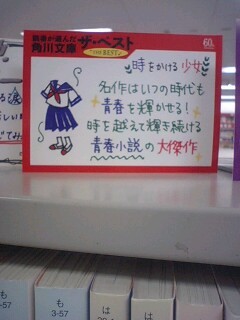 読者が選んだ
角川文庫
ザ・ベスト
THE BEST
60
時をかける少女
名作はいつの時代も
青春を輝かせる!
時を越えて輝き続ける
青春小説の大傑作
も
3-57
も
は
は